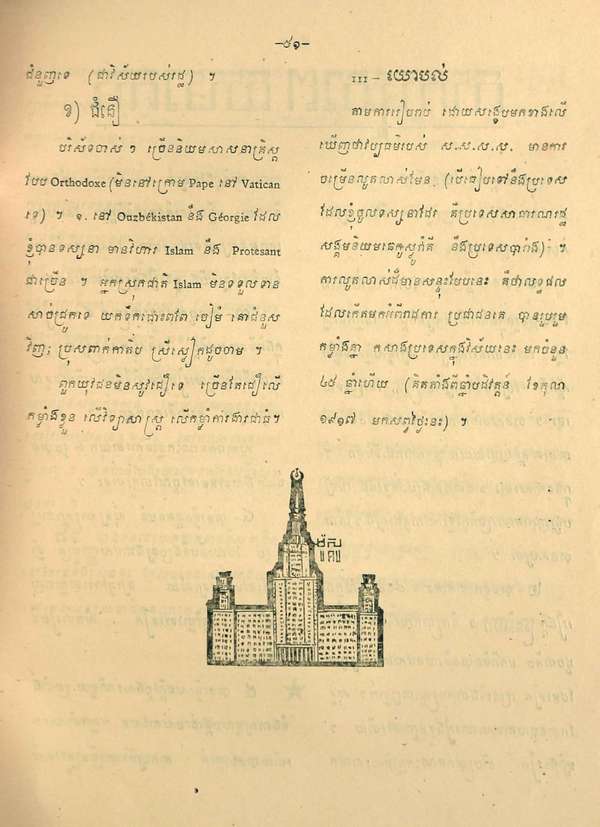 –៥១–
ជំនួញទេ (ជាវិស័យរបស់រដ្ឋ) ។
ខ) ជំនឿ
បរិស័ទចាស់ ៗ ច្រើននិយមសាសនាគ្រិស្ត
បែប Orthodoxe (មិននៅក្រោម Pape នៅ Vatican
ទេ) ។ ១. នៅ Ouzbékistan នឹង Géorgie ដែល
ខ្ញុំបានទស្សនា មានវិហារ Islam នឹង Protesant
ជាច្រើន ។ អ្នកស្រុកជាតិ Islam មិនទទួលទាន
សាច់ជ្រូកទេ យកទឹកដោះពពែ ចៀម នោជំនួស
វិញ; ប្រុសពាក់កាតិប ស្រីស្លៀកដូចចាម ។
ពួកយុវជនមិនសូវជឿទេ ច្រើនតែជឿលើ
កម្លាំងខ្លួន លើវិទ្យាសាស្ត្រ លើកម្លាំការងារជាធំ។
III – យោបល់
តាមការរៀបរាប់ ដោយសង្ខេបមកខាងលើ
ឃើញថាវប្បធម៌របស់ ស.ស.ស.ស. មានការ
ចម្រើនលូតលាស់មែន (បើធៀបទៅនឹងប្រទេស
ដែលខ្ញុំចូលទស្សនាដែរ គឺប្រទេសសាធារណរដ្ឋ
សង្គមនិយមឆេកូស្លូវ៉ាគី នឹងប្រទេសបារាំង) ។
ការលូតលាស់ដ៏មានសន្ទុះបែបនេះ គឺជាលទ្ធផល
ដែលកើតមកអំពីរាជការ ប្រជាជនគេ បានរួបរួម
កម្លាំងគ្នា កសាងប្រទេសក្នុងវិស័យនេះ មកចំនួន
៤៥ ឆ្នាំហើយ (គិតតាំងពីឆ្នាំបដិវត្តន៍ ខែតុលា
១៩១៧ មកសព្វថ្ងៃនេះ) ។